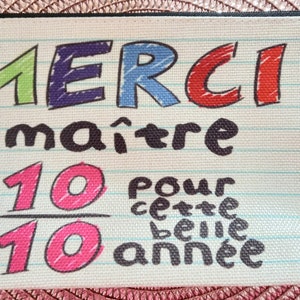 MERCI
maître
10
10
pour
cette
belle
année